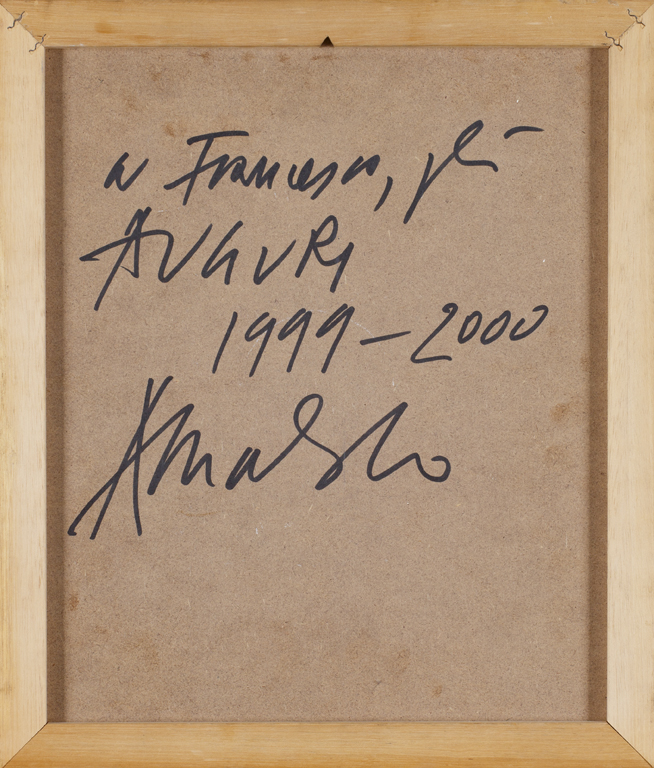 a Francesca, gli
AUGURI
1999-2000
Arnaldo